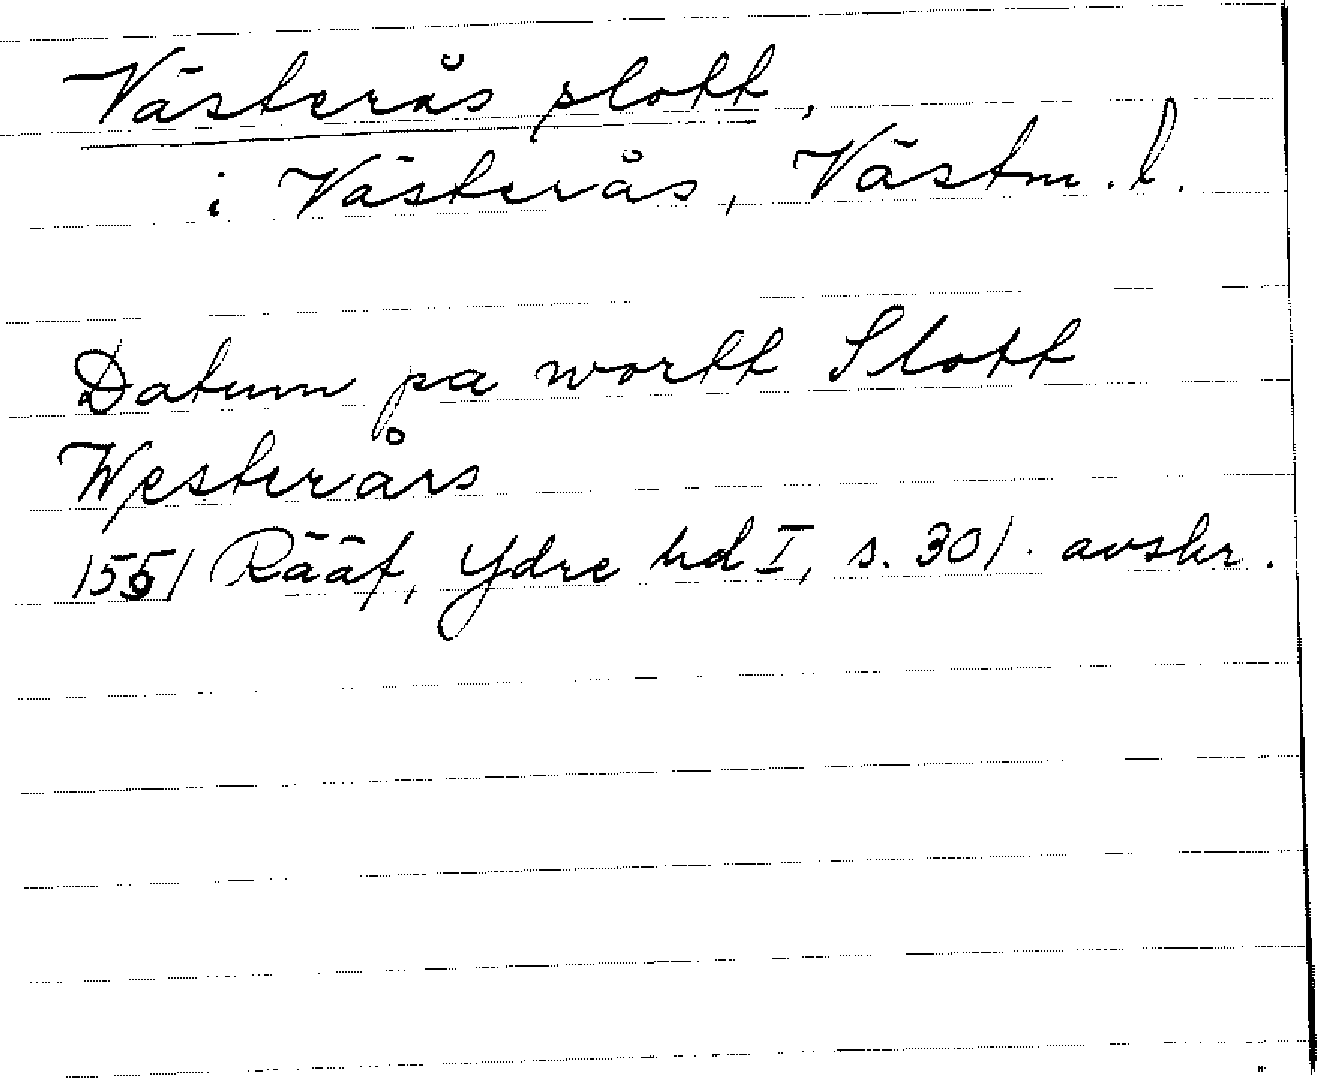 Västerås slott,
i Västerås, Västm. l.
Datum pa wortt Slott
Westerårs
1551 Rääf, Ydre hd I, s. 301. avskr.